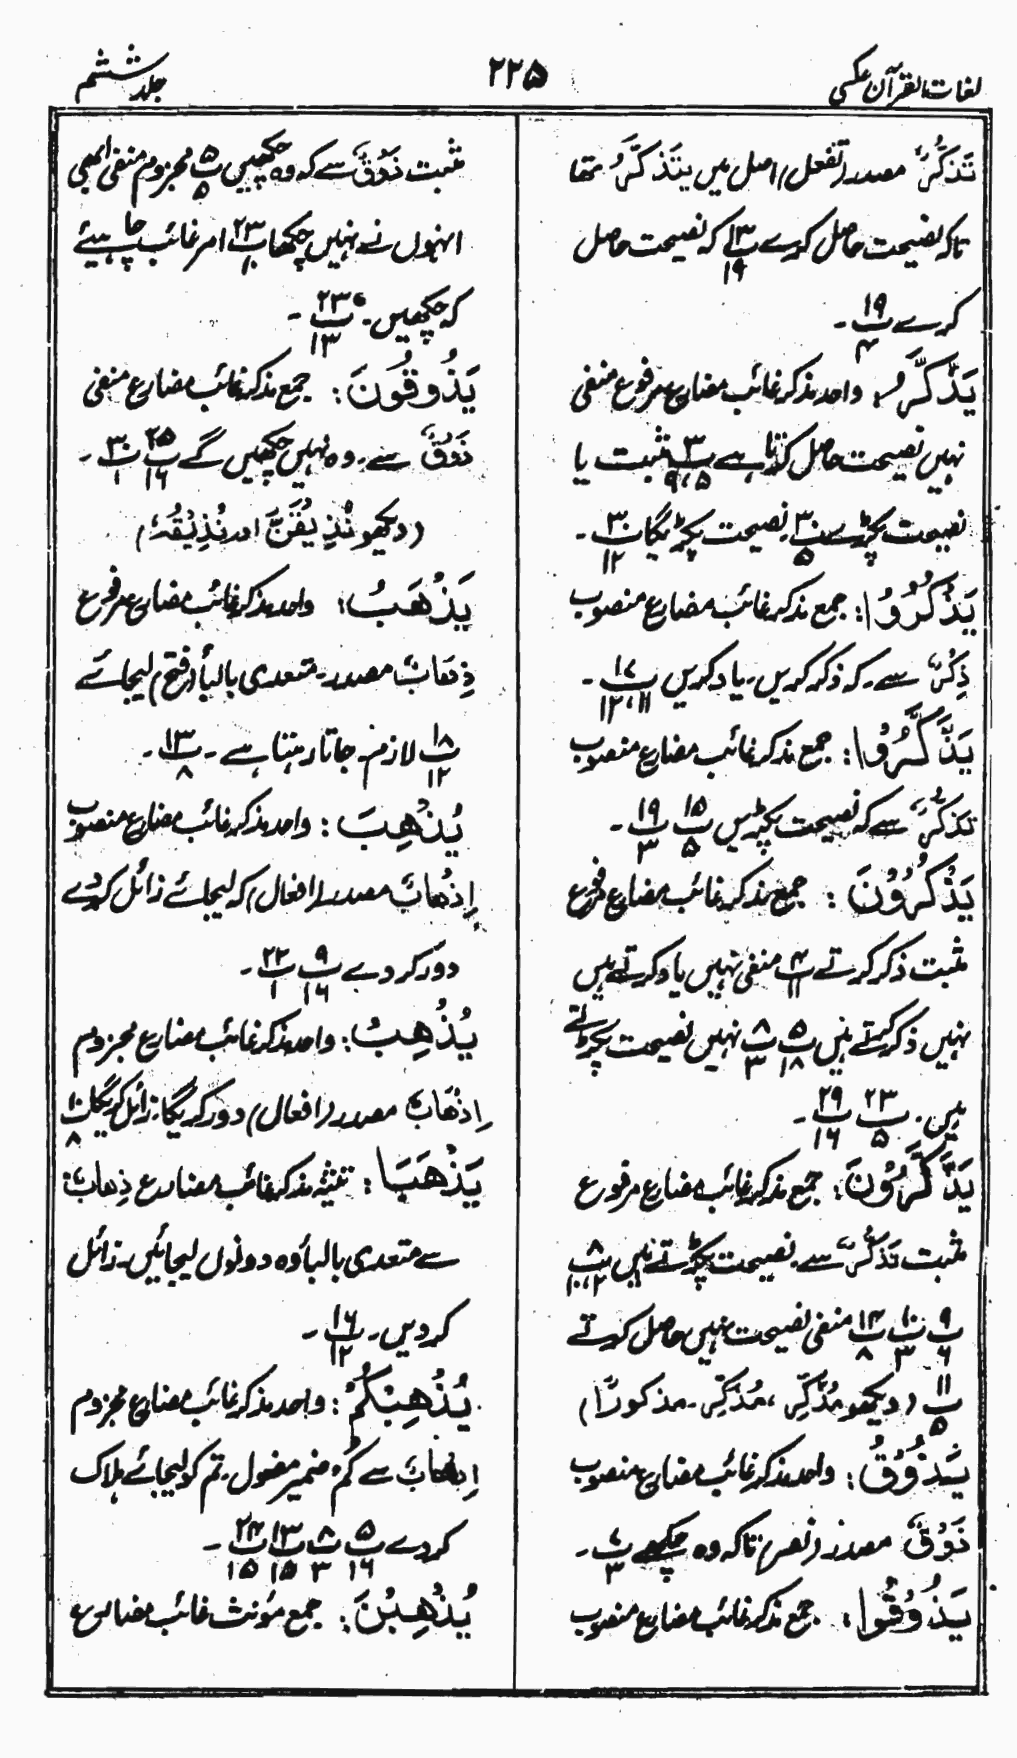 لغات القرآن عکسی
۲۲۵
جلد ششم
تَذَکُّرٌ مصدر (تفعل) اصل میں یَتَذَکَّرُ تھا
تاکہ نصیحت حاصل کرے پ۱۳/۱۹ کہ نصیحت حاصل
کرے پ۱۹/۴ -
یَذَّکَّرُ: واحد مذکر غائب مضارع مرفوع منفی
نہیں نصیحت حاصل کرتا ہے پ۳/۹،۵ مثبت یا
نصیحت پکڑے پ۳۰/۵ نصیحت پکڑیگا پ۳۰/۱۲ -
یَذْکُرُوْا: جمع مذکر غائب مضارع منصوب
ذِکْرٌ سے۔ کہ ذکر کریں۔ یاد کریں پ۱۷/۱۲،۱۱ -
یَذَّکَّرُوْا: جمع مذکر غائب مضارع منصوب
تذکُّرٌ سے کہ نصیحت پکڑیں پ۱۵/۵ پ۱۹/۳ -
یَذْکُرُوْنَ: جمع مذکر غائب مضارع مرفوع
مثبت ذکر کرتے پ۴/۱۱ منفی نہیں یاد کرتے ہیں
نہیں ذکر کرتے ہیں پ۵/۱۸ پ۸/۳ نہیں نصیحت پکڑتے
ہیں۔ پ۲۳/۵ پ۲۹/۱۶ -
یَذَّکَّرُوْنَ: جمع مذکر غائب مضارع مرفوع
مثبت تَذَکُّرٌ سے۔ نصیحت پکڑتے ہیں پ۸/۱۰،۲
پ۹/۶ پ۱۰/۳ پ۱۴/۸ منفی نصیحت نہیں حاصل کرتے
پ۱۱/۵ (دیکھو مُذَّکِّر، مُذَکِّر۔ مذکورًا)
یَذُوْقُ: واحد مذکر غائب مضارع منصوب
ذَوْقٌ مصدر (نصر) تاکہ وہ چکھے پ۷/۳ -
یَذُوْقُوا: جمع مذکر غائب مضارع منصوب
مثبت ذَوْقٌ سے کہ وہ چکھیں پ۵/۵ مجزوم منفی ابھی
انہوں نے نہیں چکھا پ۲۳/۱۰ امر غائب چاہیئے
کہ چکھیں۔ پ۲۳/۱۳ -
یَذُوقُونَ: جمع مذکر غائب مضارع منفی
ذَوْقٌ سے۔ وہ نہیں چکھیں گے پ۲۵/۱۶ پ۳۰/۱ -
(دیکھو نُذِیْقَنَّ اور نُذِیْقُهٗ)
یَذْهَبُ: واحد مذکر غائب مضارع مرفوع
ذِهَابٌ مصدر۔ متعدی بالبأ (فتح) لیجائے
پ۱۸/۱۲ لازم۔ جاتا رہتا ہے۔ پ۱۳/۸ -
یُذْهِبَ: واحد مذکر غائب مضارع منصوب
اِذْهَابٌ مصدر (افعال) کہ لیجائے زائل کردے
دور کردے پ۹/۱۶ پ۲۲/۱ -
یُذْهِبُ: واحد مذکر غائب مضارع مجزوم
اِذْهَابٌ مصدر (افعال) دور کریگا۔ زائل کریگا پ۱۰/۸
یَذْهَبَا: تثنیہ مذکر غائب مضارع ذِهابٌ
سے متعدی بالبأ وہ دونوں لیجائیں۔ زائل
کردیں۔ پ۱۶/۱۲ -
یُذْهِبْکُمْ: واحد مذکر غائب مضارع مجزوم
اِذْهَابٌ سے کُمْ ضمیر مفعول۔ تم کو لیجائے ہلاک
کردے پ۵/۱۶ پ۸/۳ پ۱۳/۱۵ پ۲۴/۱۵ -
یُذْهِبْنَ: جمع مؤنث غائب مضارع